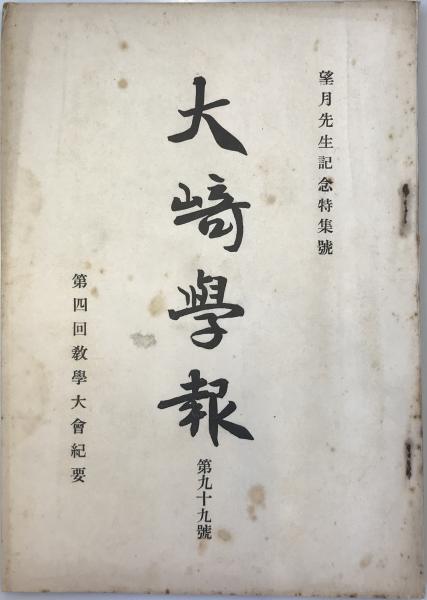 望月先生記念特集號
大﨑學報
第九十九號
第四回敎學大會紀要